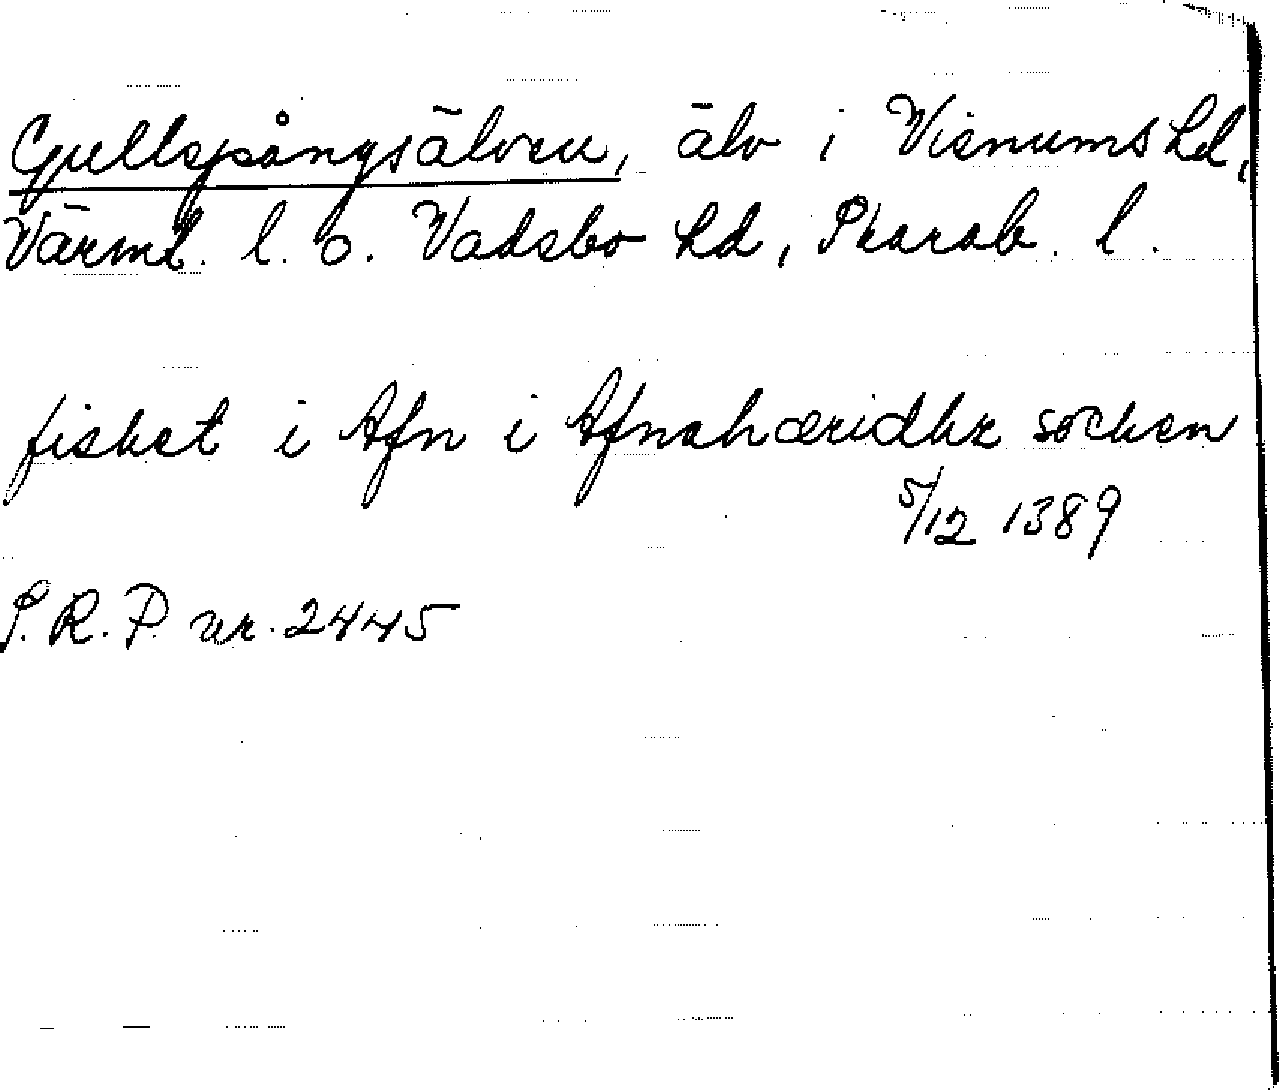 Gullspångsälven, älv i Visnums hd,
Värml. l. o. Vadsbo hd, Skarab. l.
fisket i Afn i Afnahæridhz socken
5/12 1389
S.R.P. nr. 2445